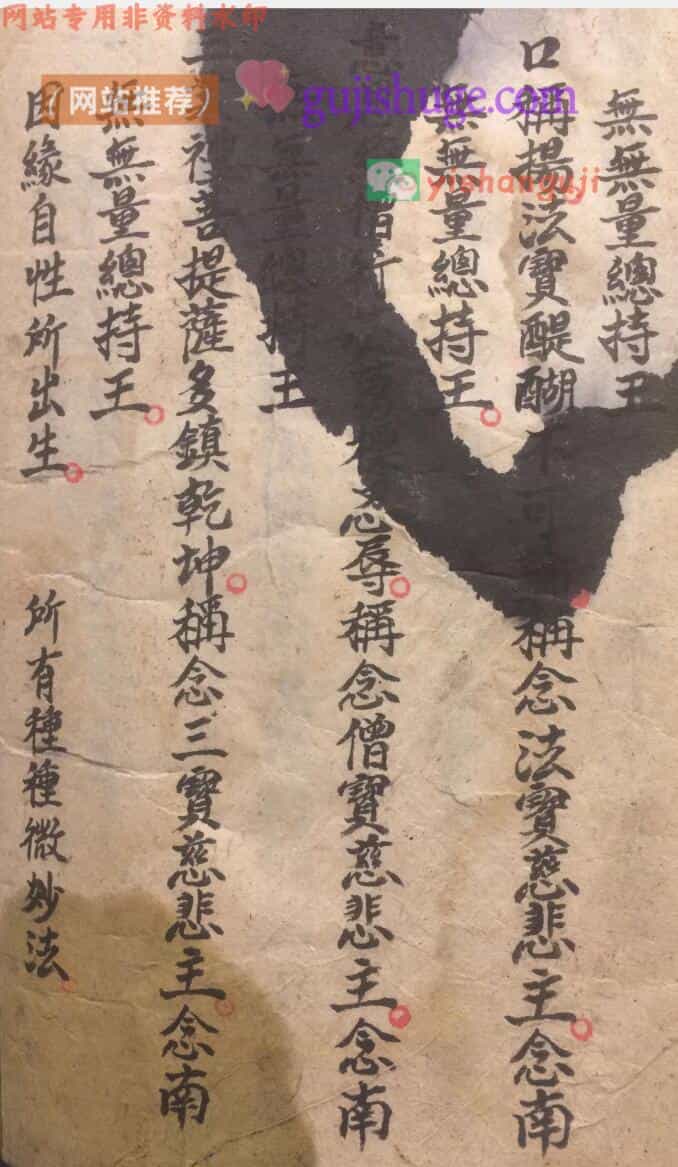 網站专用非资料水印
（网站推荐）
gujishuge.com
yishanguji
無無量總持王
口稱揚法寶醍醐不可 稱念法寶慈悲主念南
無無量總持王
意 僧行 忍辱稱念僧寶慈悲主念南
無無量總持王
三 社菩提薩多鎮乾坤稱念三寶慈悲主念南
無無量總持王
因緣自性所出生 所有種種微妙法